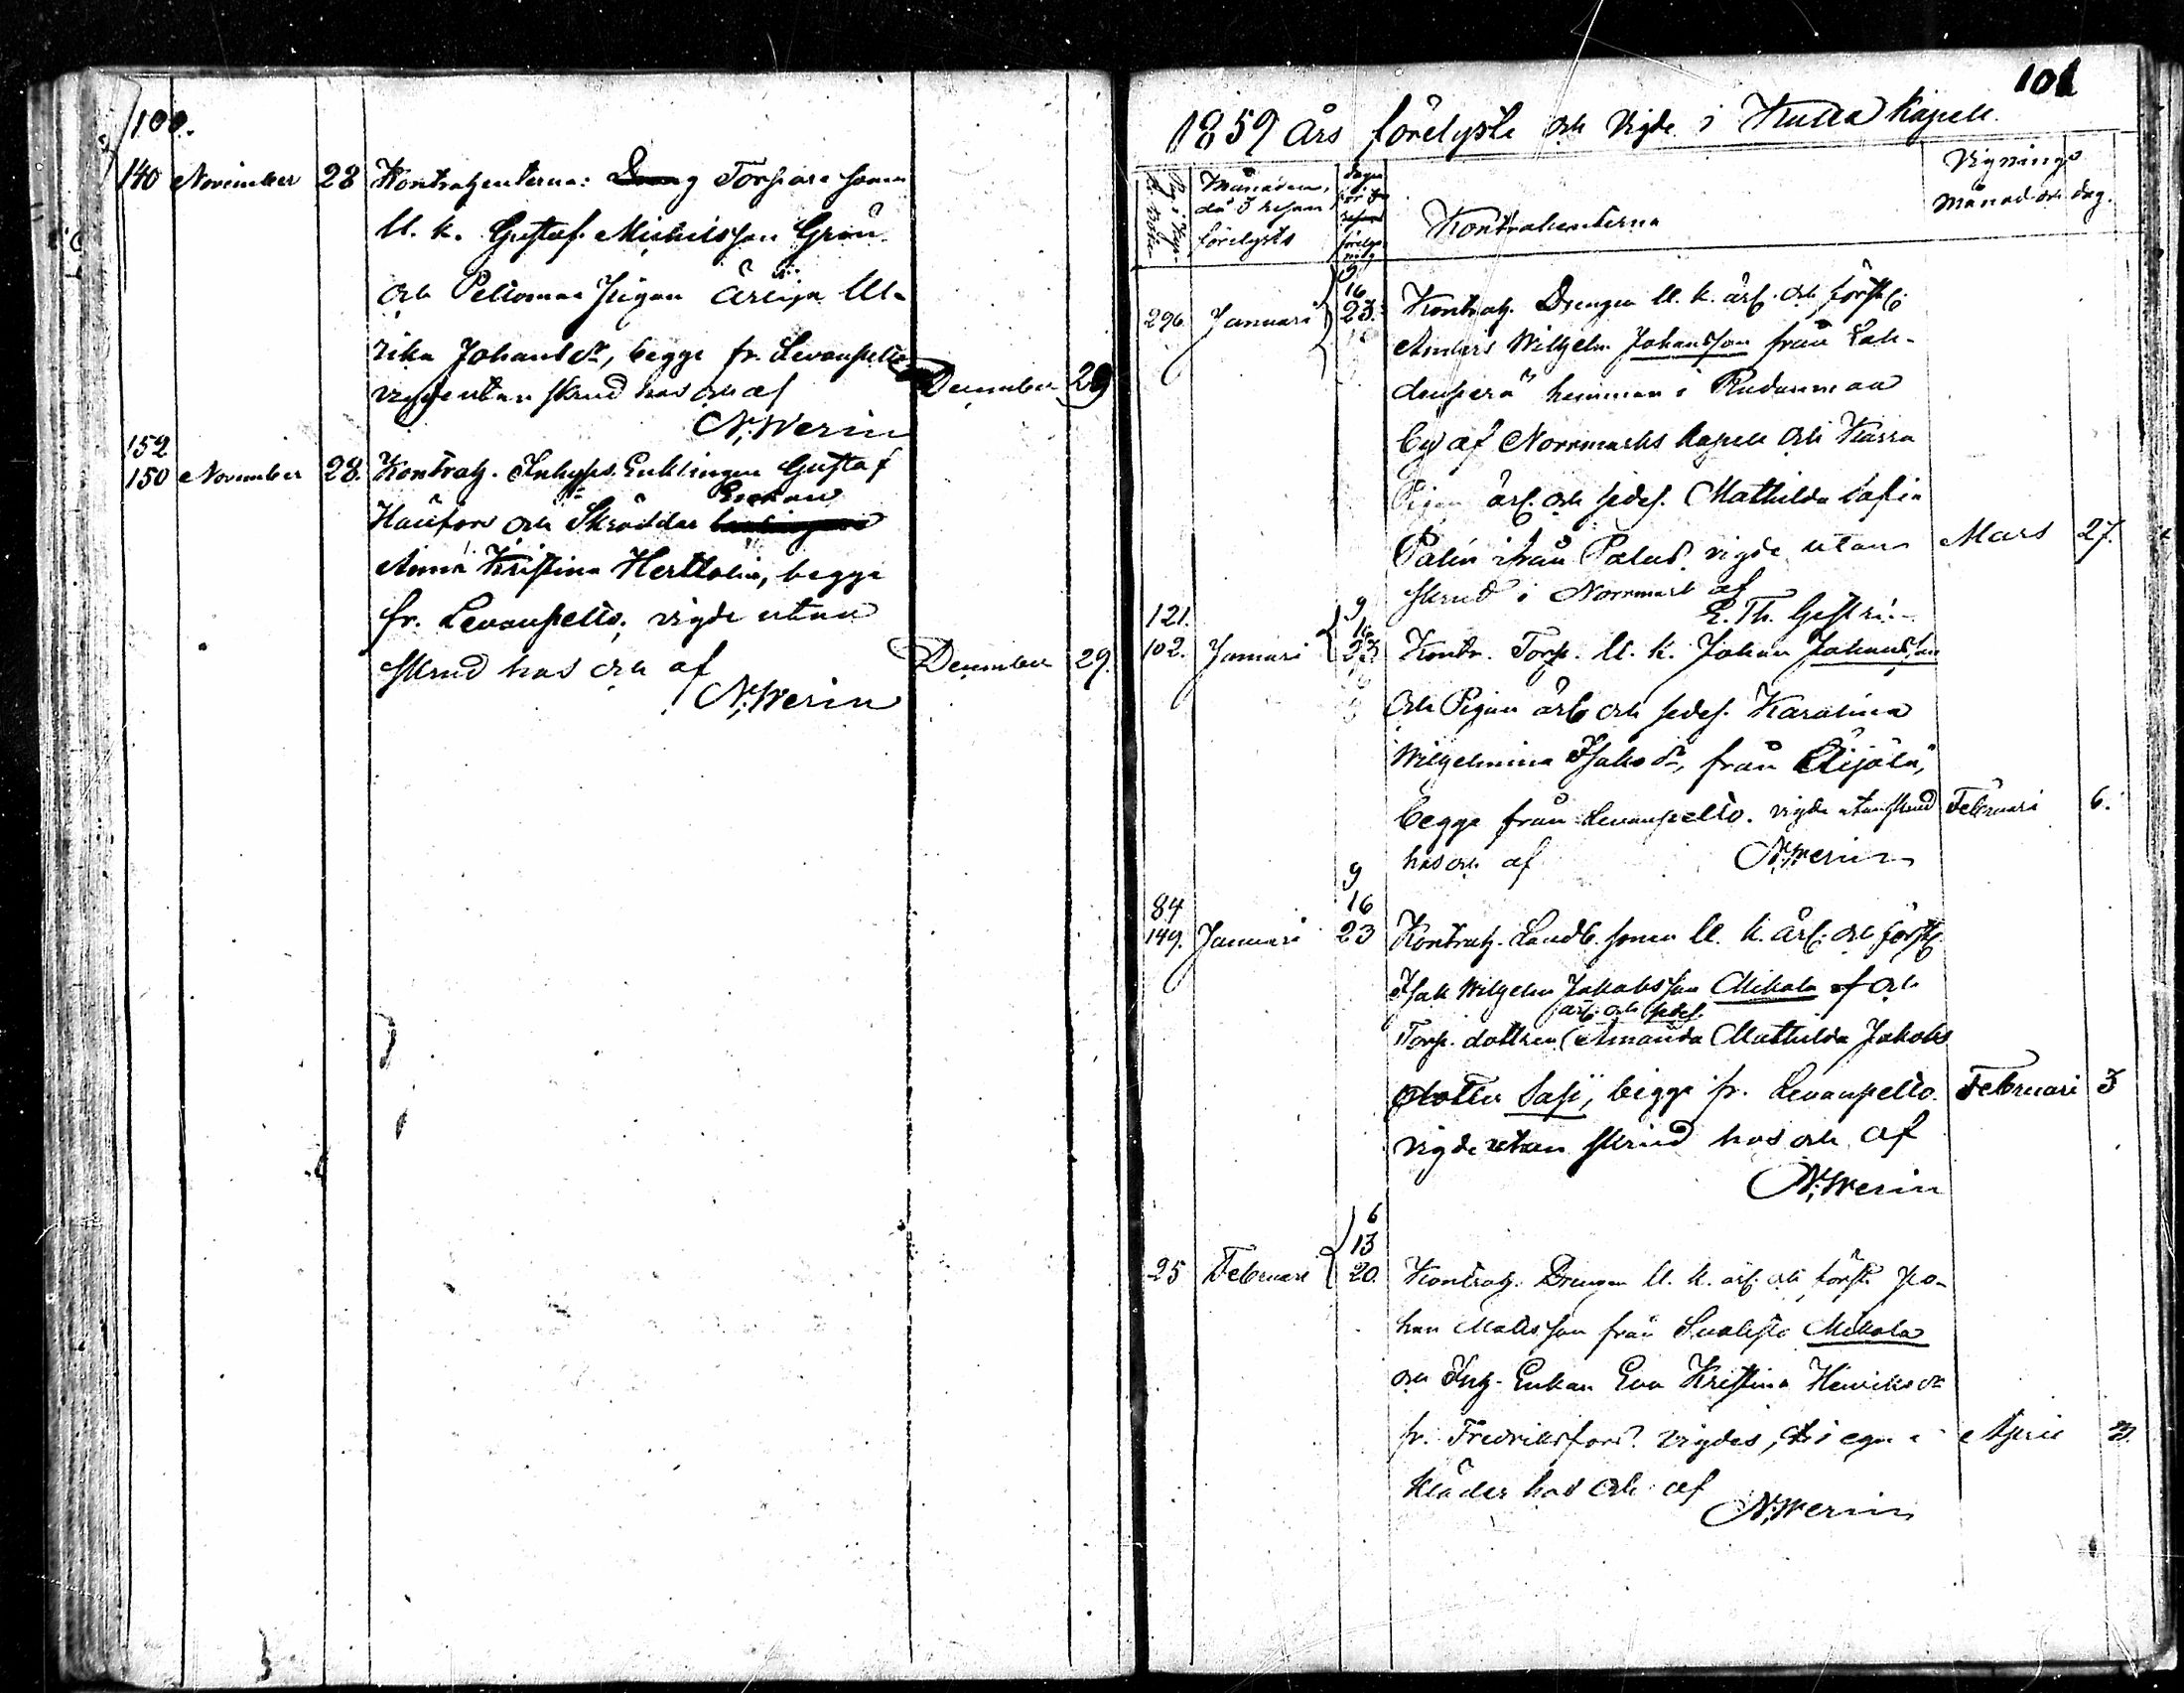 100.
140 November 28 Kontrahenterna: Drang Torpare sonen
U. k. Gustaf Michelsson Grön
och Peltomaa Pigan ärliga Ul-
rika Johansdr, begge fr. Levanpelto
vigde utan skrud hos och af December 29
N. Werin
152
150 November 28. Kontrah. Inhyses Enklingen Gustaf
Enkan
Haufors och Skräddar
Anna Kristina Herttolin, begge
fr. Levanpelto, vigde utan
skrud hos och af December 29.
N. Werin
101
1859 Års förelyste och Vigde i Kulla Kapell.
Månaden, då 3 resan förelysts
Kontrahenterna
Vignings
Månad och dag.
9
16
296. Januari 23. Kontrah. Drengen U. k. ärl. och förstl.
Anders Wilhelm Johansson från Lah-
denperä hemman i Rudanmaa
by af Norrmarks Kapell och Karra
Pigan ärl. och sedes. Mathilda Sofia
Palin ifrån Palus. vigde utan Mars 27.
skrud i Norrmark af
E. Th. Gestrin
121. 9
16
102. Januari 23. Kontr. Torp. U. k. Johan Johansson
och Pigan ärl. och sedes. Karolina
Wilhelmina Isaksdr, från Äijälä,
begge från Levanpelto. vigde utan skrud Februari 6.
hos och af N. Werin
9
84 16
149. Januari 23 Kontrah. Landb. sonen U. k. ärl. och förstl.
Isak Wilhelm Jakobsson Mikola och
ärl. och sedes.
Torp. dottren Amanda Mathilda Jakobs
dotter Sasi, begge fr. Levanpelto. Februari 3
vigde utan skrud hos och af
N. Werin
6
13
25 Februari 20. Kontrah. Drengen U. k. ärl. och förstl. Jo-
han Matsson från Suolisto Mikola
och Inh. Enkan Eva Kristina Henriksdr
fr. Fredriksfors. vigdes, i egna April
kläder hos och af
N. Werin